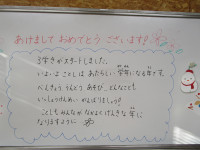 あけまして おめでとう ございます!
3学きがスタートしました。
いよいよ ことしは あたらしい 学年になる年です。
べんきょう うんどう あそび どんなことも
いっしょうけんめい がんばりましょう!
ことしも みんなが なかよく げんきな 年に
なりますように